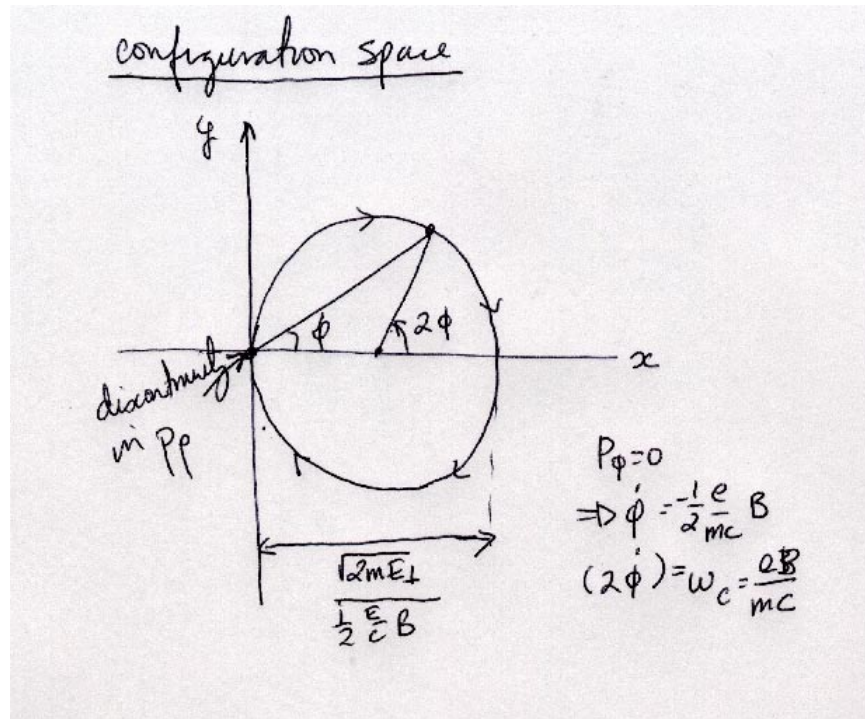 configuration space
y
φ
2φ
x
discontinuity
in Pρ
√2mE⊥
1/2 E/c B
Pφ=0
⇒ φ̇ = -1/2 e/mc B
(2φ̇) = ωc = eB/mc